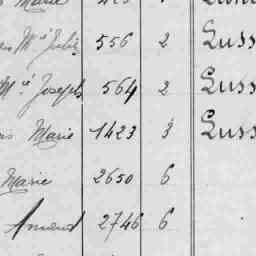 Marie
Mie Julie 556 2 Luss
Mie Joseph 564 2 Luss
Marie 1423 3 Luss
Marie 2650 6
Amand 2746 6